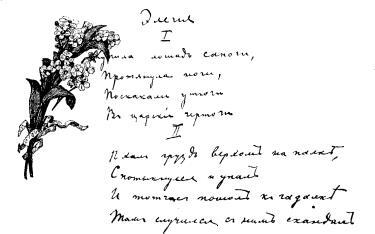 Элегия
I
упила лошадь сапоги,
Протянула ноги,
Поскакали утюги
Въ царскіе чертоги
II
Ѣхалъ груздь верхомъ на палкѣ,
Спотыкнулся и упалъ
И тотчасъ пошолъ къ гадалкѣ
Тамъ случился съ нимъ скандалъ